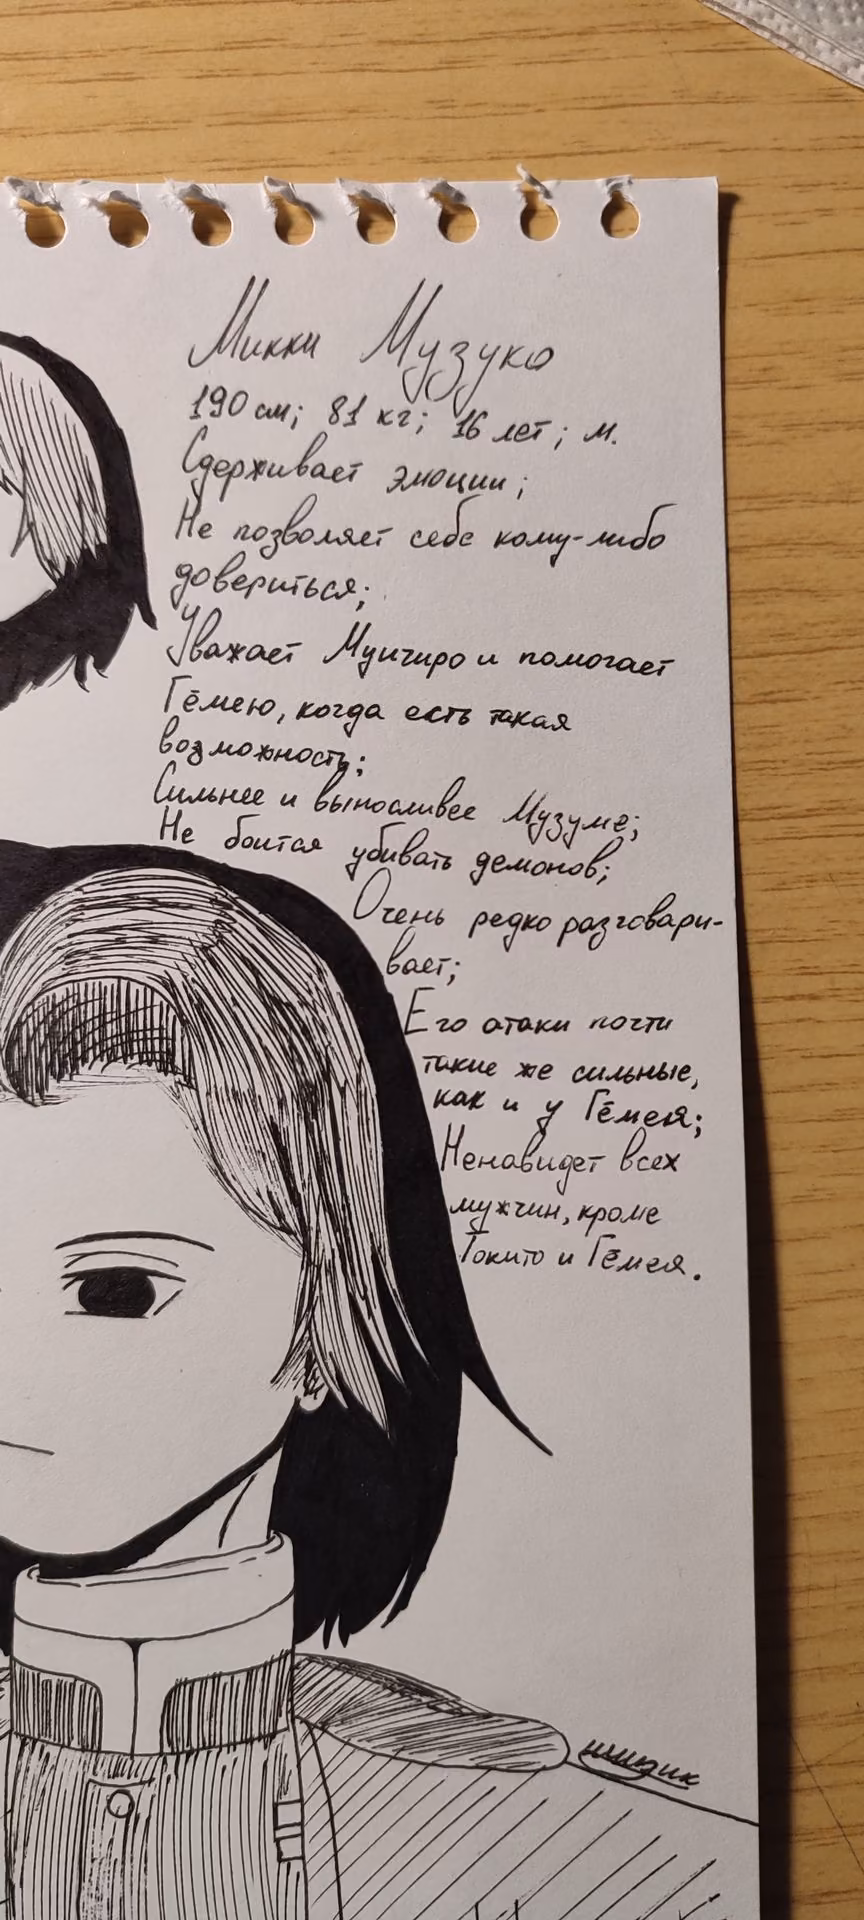 Микки Музуко
190 см; 81 кг; 16 лет; м.
Сдерживает эмоции;
Не позволяет себе кому-либо
довериться;
Уважает Муичиро и помогает
Гёмею, когда есть такая
возможность;
Сильнее и выносливее Музуме;
Не боится убивать демонов;
Очень редко разговари-
вает;
Его атаки почти
такие же сильные,
как и у Гёмея;
Ненавидет всех
мужчин, кроме
Токито и Гёмея.